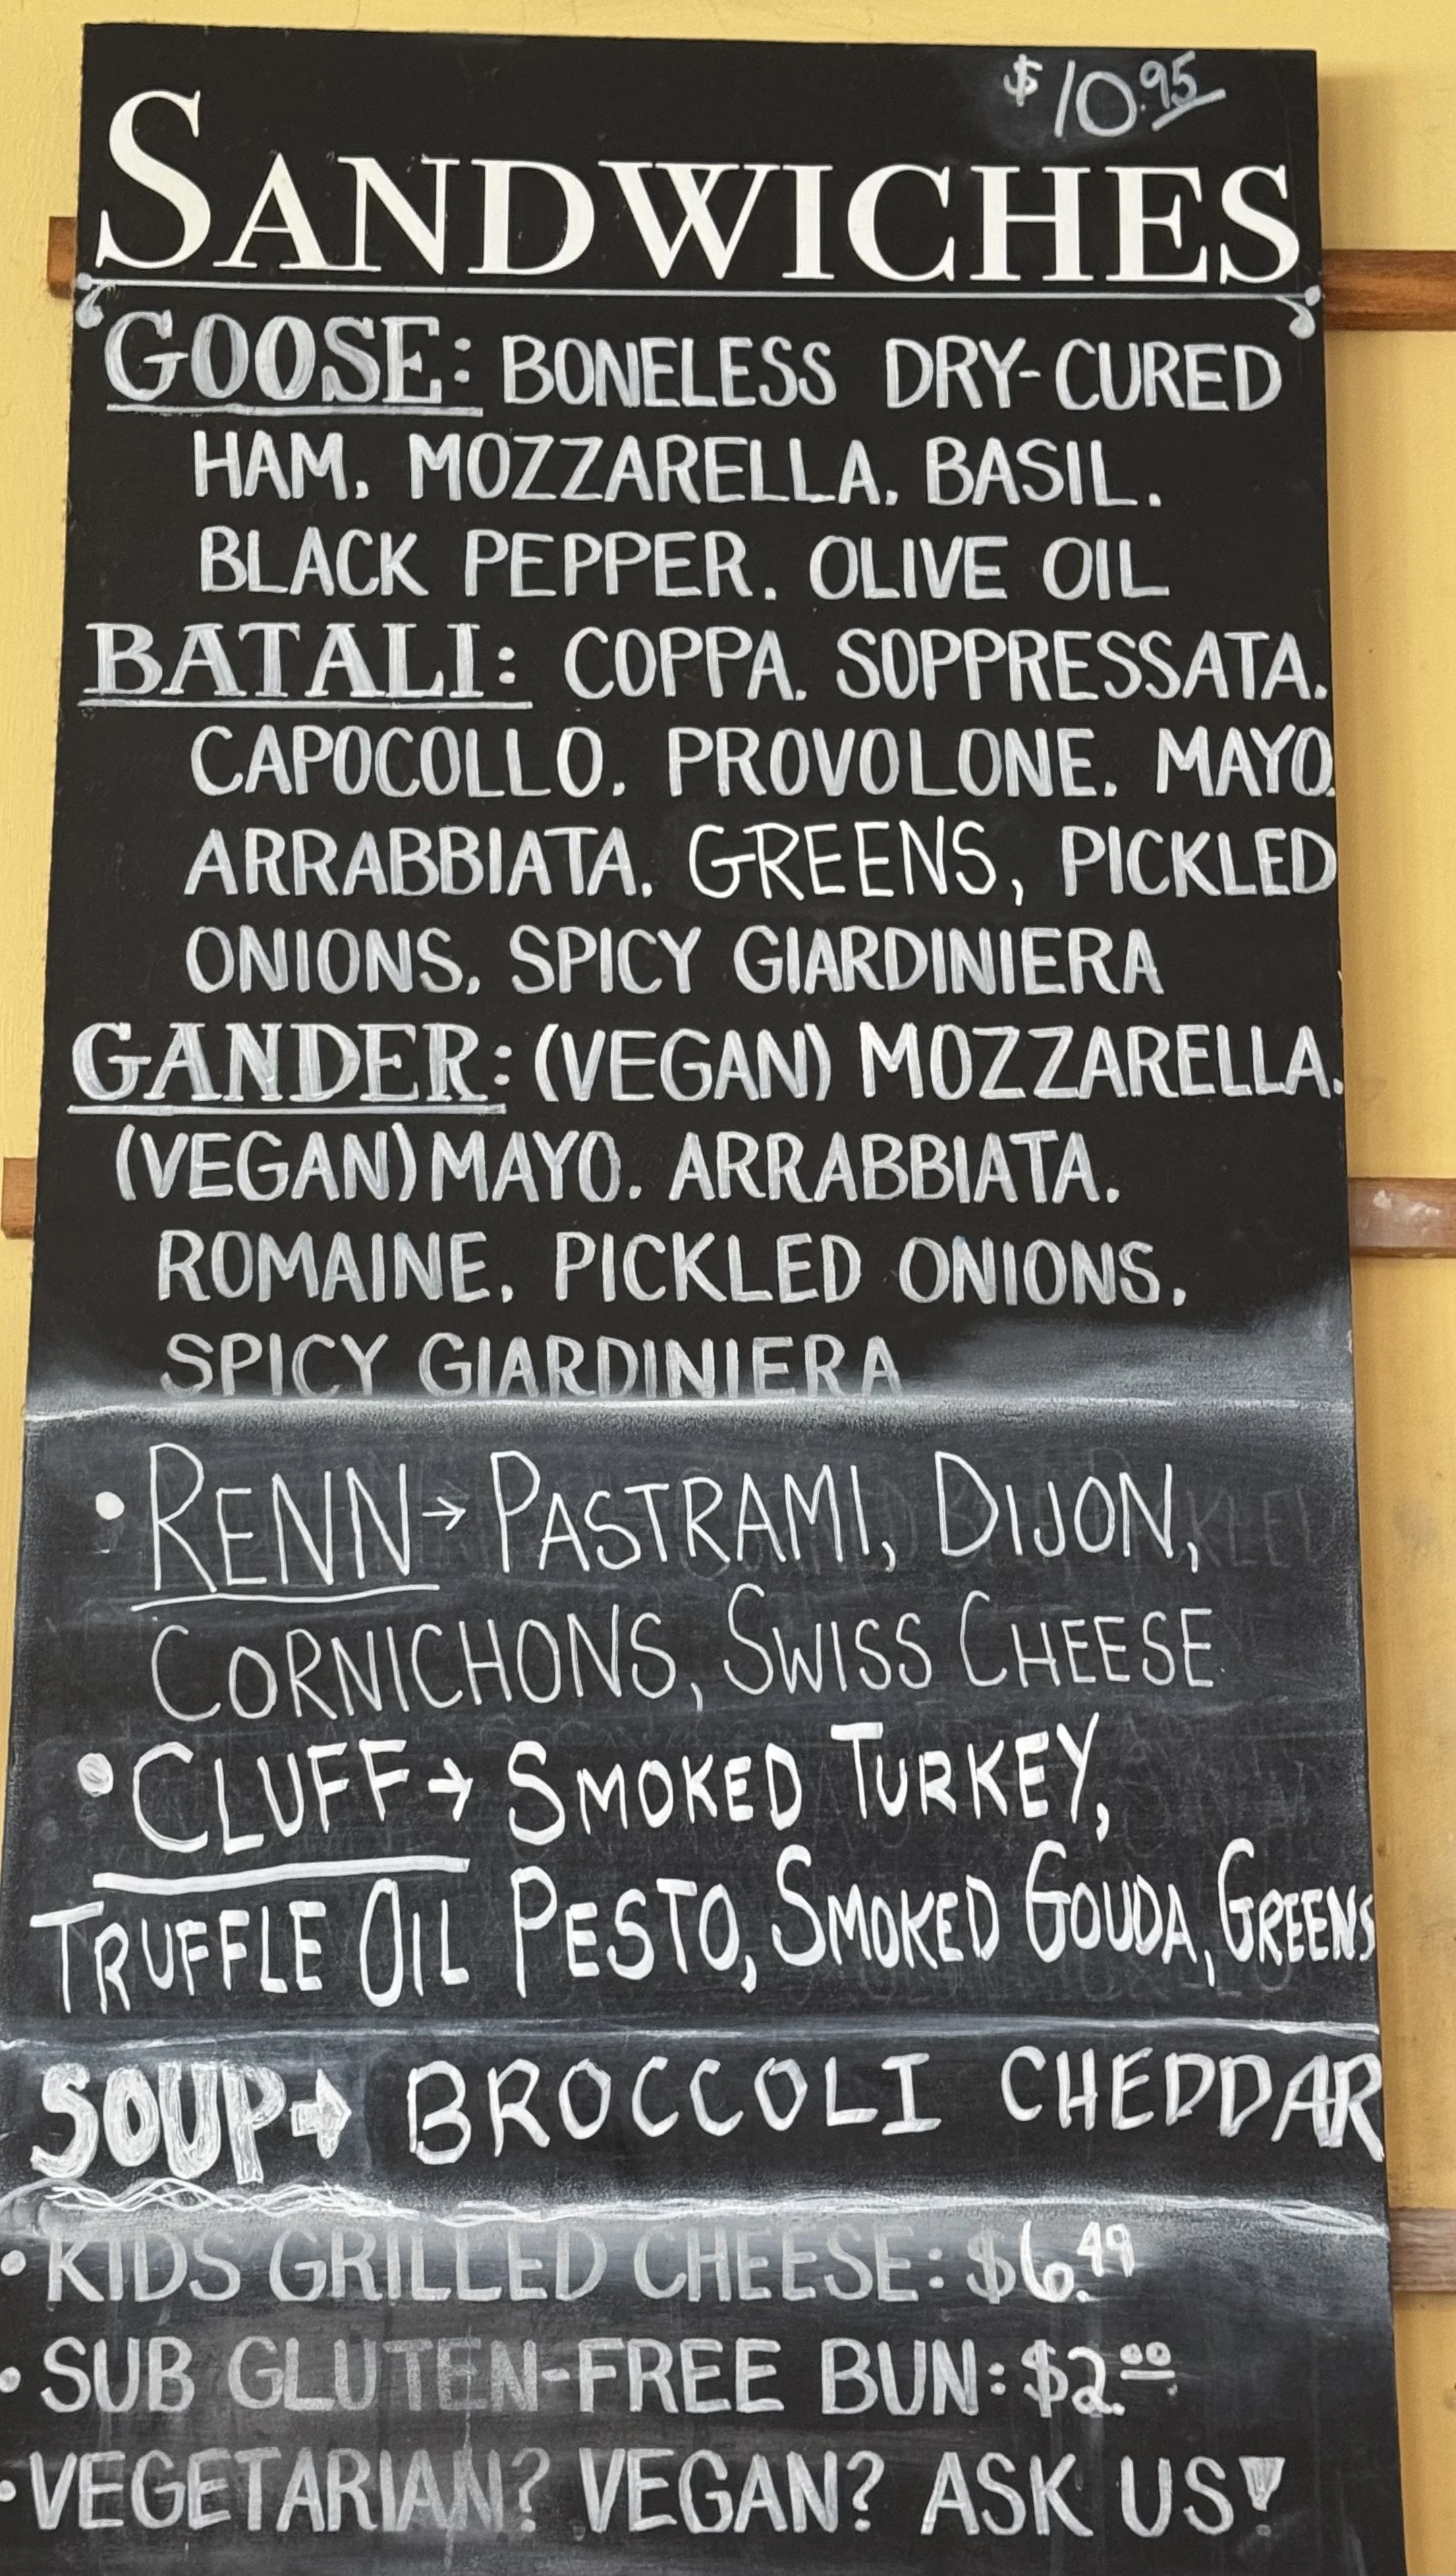 $10.95
SANDWICHES
GOOSE: BONELESS DRY-CURED
HAM, MOZZARELLA, BASIL,
BLACK PEPPER, OLIVE OIL
BATALI: COPPA, SOPPRESSATA,
CAPOCOLLO, PROVOLONE, MAYO,
ARRABBIATA, GREENS, PICKLED
ONIONS, SPICY GIARDINIERA
GANDER: (VEGAN) MOZZARELLA,
(VEGAN) MAYO, ARRABBIATA,
ROMAINE, PICKLED ONIONS,
SPICY GIARDINIERA
• RENN → PASTRAMI, DIJON,
CORNICHONS, SWISS CHEESE
• CLUFF → SMOKED TURKEY,
TRUFFLE OIL PESTO, SMOKED GOUDA, GREENS
SOUP → BROCCOLI CHEDDAR
• KIDS GRILLED CHEESE: $6.49
• SUB GLUTEN-FREE BUN: $2.00
• VEGETARIAN? VEGAN? ASK US!